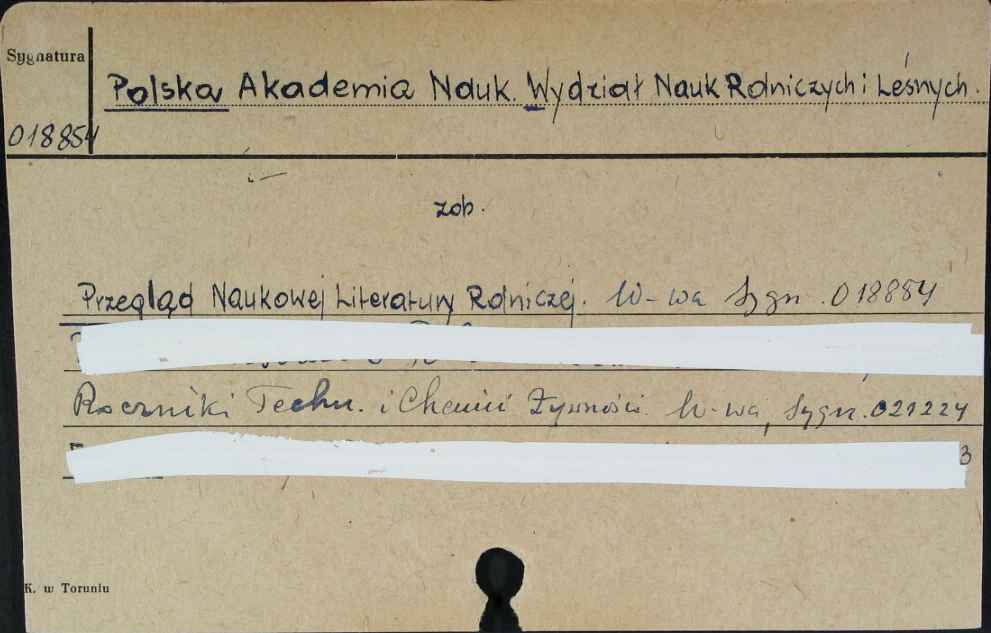 Sygnatura
Polska Akademia Nauk. Wydział Nauk Rolniczych i Leśnych.
018854
zob.
Przegląd Naukowej Literatury Rolniczej. W-wa Sygn. 018854
Roczniki Techn. i Chemii Żywności. W-wa, Sygn. 021224
3
K. w Toruniu